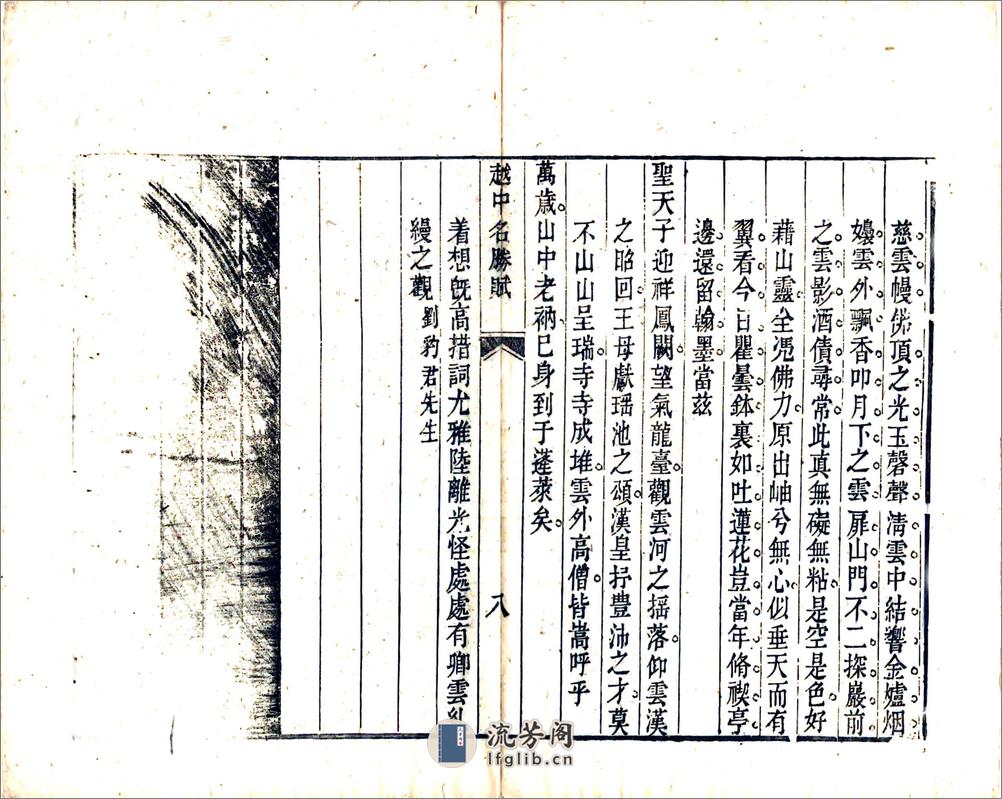 慈雲幔佛頂之光玉磬聲清雲中結響金爐烟
嬝雲外飄香叩月下之雲扉山門不二探巖前
之雲影酒債尋常此真無礙無粘是空是色好
藉山靈全憑佛力原出岫兮無心似垂天而有
翼看今日瞿曇鉢裏如吐蓮花豈當年脩禊亭
邊還留翰墨當茲
聖天子迎祥鳳闕望氣龍臺觀雲河之搖落仰雲漢
之昭回王母獻瑶池之頌漢皇抒豊沛之才莫
不山山呈瑞寺寺成堆雲外高僧皆嵩呼乎
萬歲山中老衲已身到于蓬萊矣
越中名勝賦
八
着想旣高措詞尤雅陸離光怪處處有卿雲糺
縵之觀 劉豹君先生
流芳阁
lfglib.cn